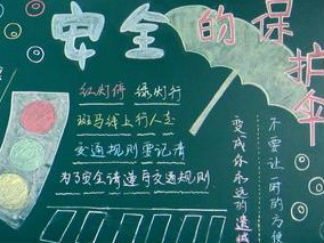 安全的保护伞
红灯停 绿灯行
斑马线上行人走
交通规则要记清
为了安全请遵守交通规则
不要让一时的方便
变成你永远的遗憾